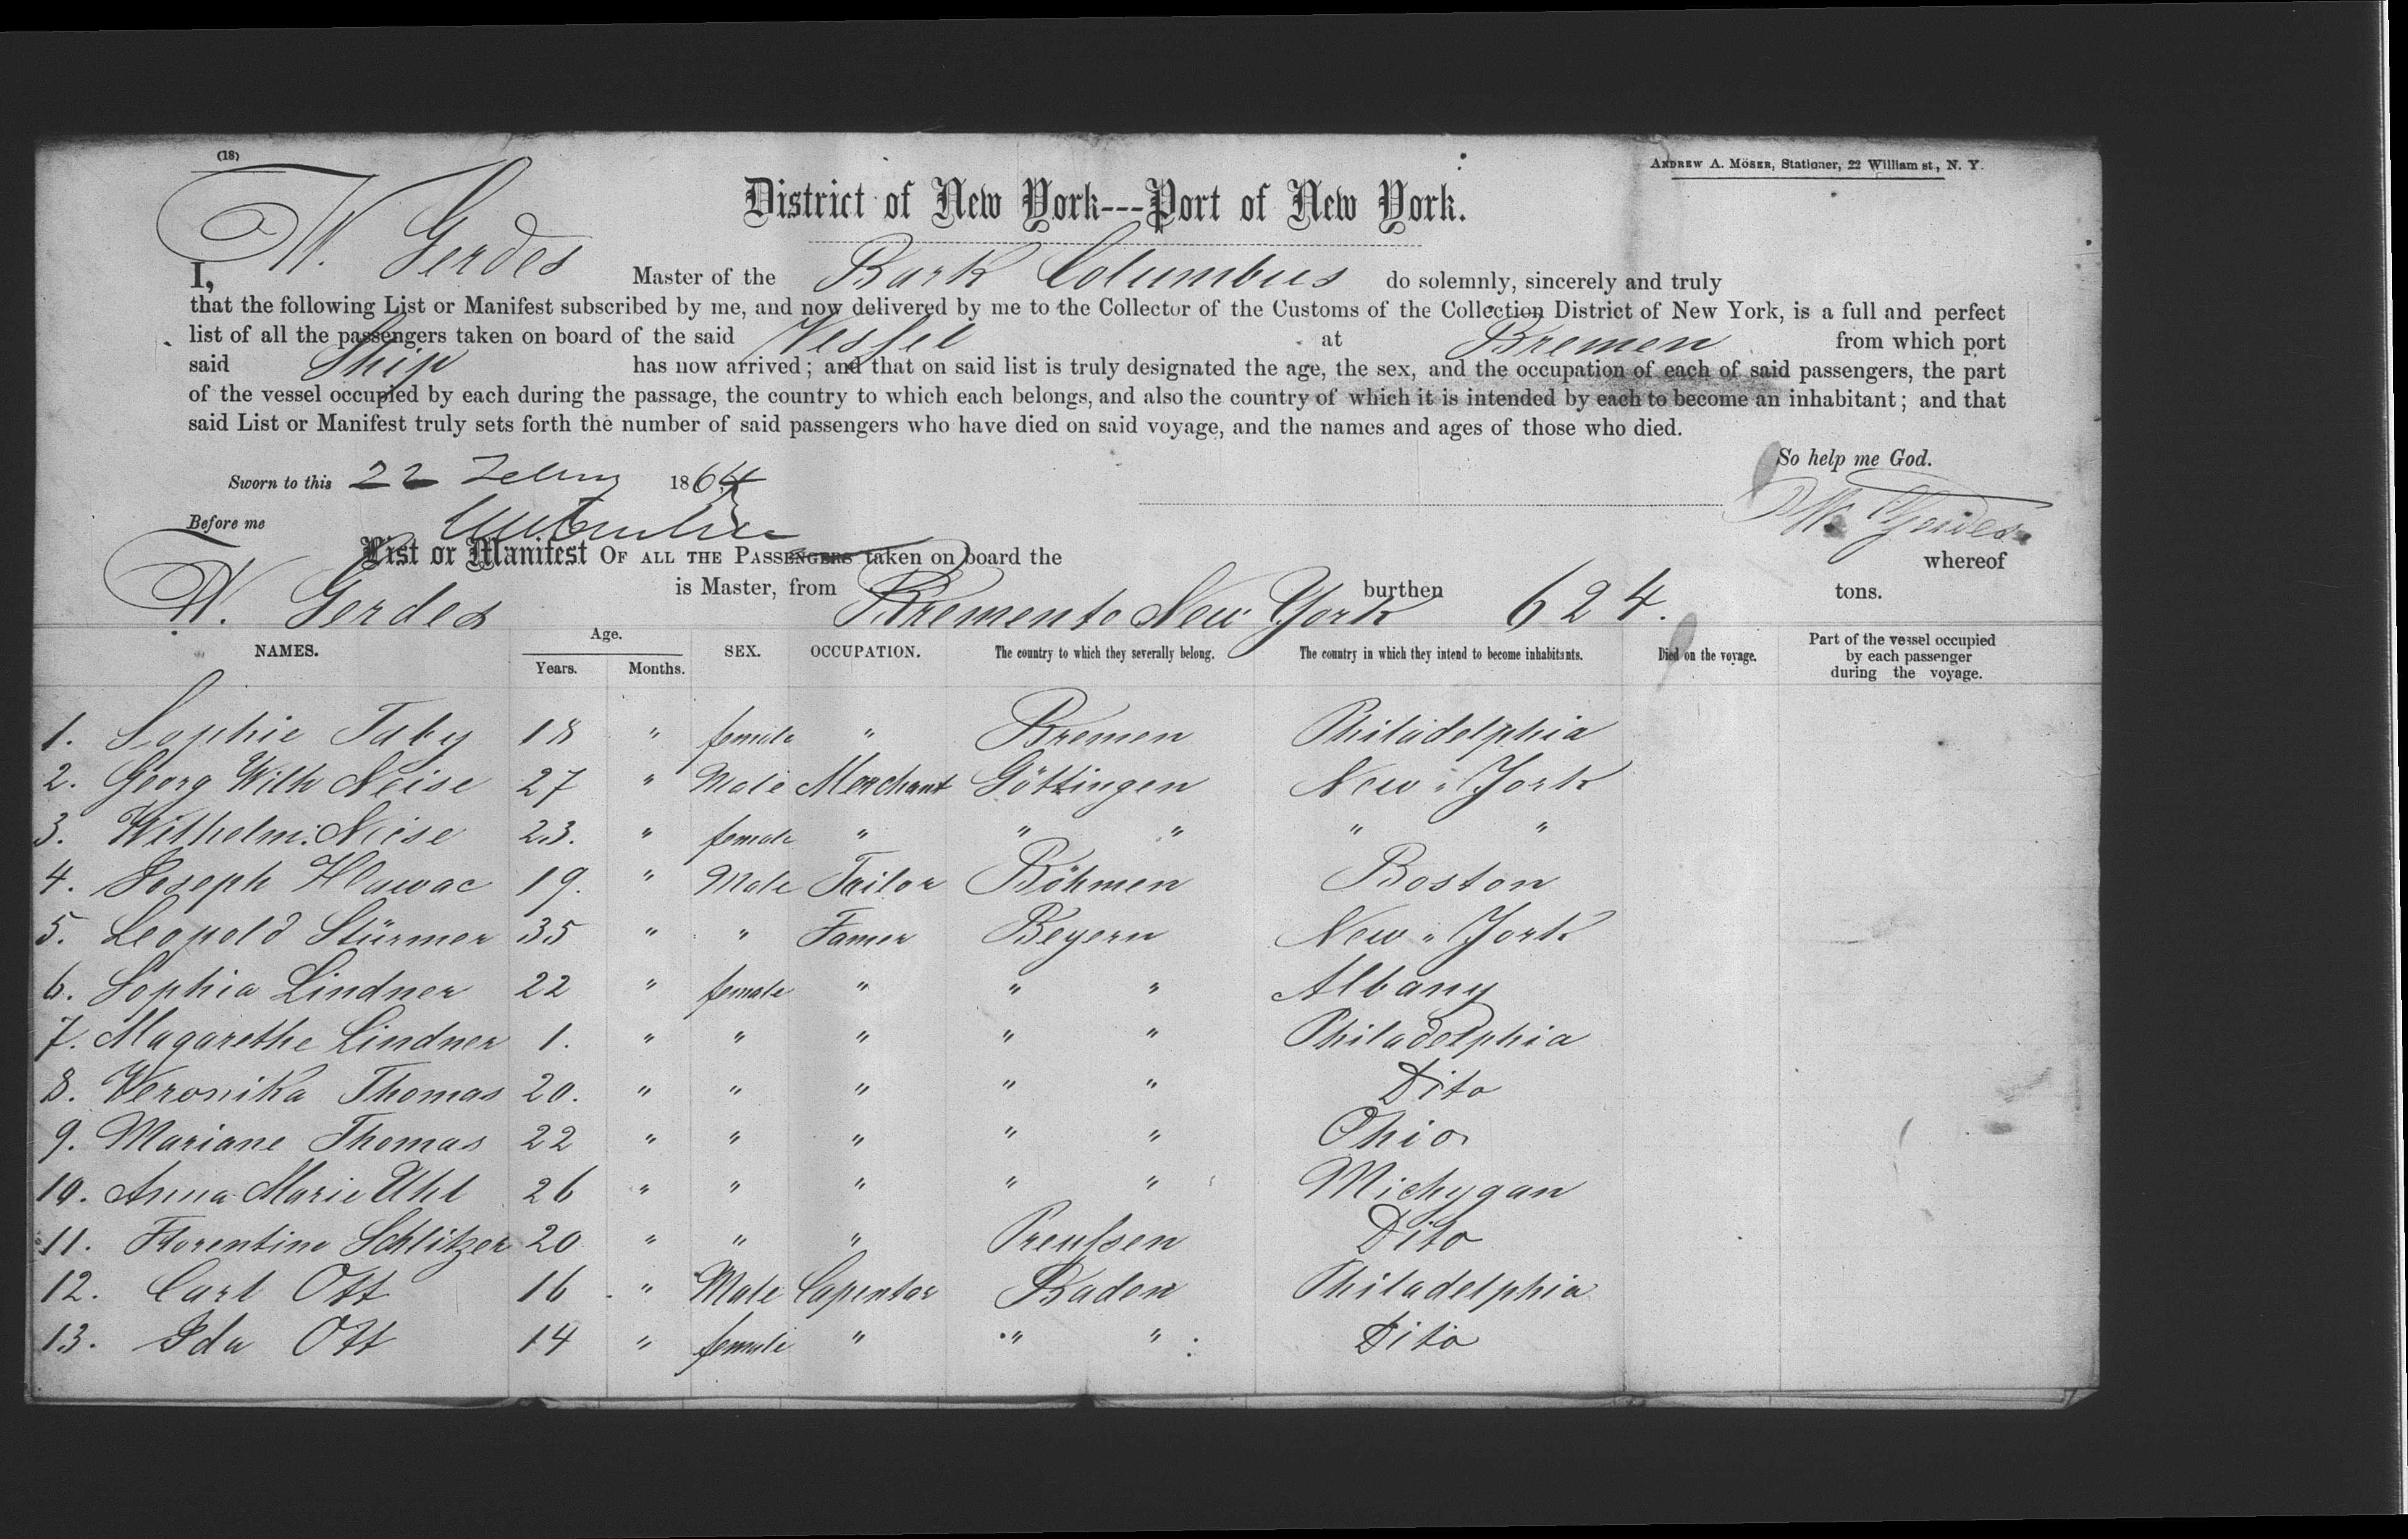 (18)
ANDREW A. MÖSER, Stationer, 22 William st, N. Y.
District of New York---Port of New York.
I, W. Gerdes Master of the Bark Columbus do solemnly, sincerely and truly
that the following List or Manifest subscribed by me, and now delivered by me to the Collector of the Customs of the Collection District of New York, is a full and perfect
list of all the passengers taken on board of the said Vessel at Bremen from which port
said Ship has now arrived; and that on said list is truly designated the age, the sex, and the occupation of each of said passengers, the part
of the vessel occupied by each during the passage, the country to which each belongs, and also the country of which it is intended by each to become an inhabitant; and that
said List or Manifest truly sets forth the number of said passengers who have died on said voyage, and the names and ages of those who died.
So help me God.
Sworn to this 22 1864
W. Gerdes
Before me
List or Manifest OF ALL THE PASSENGERS taken on board the whereof
W. Gerdes is Master, from Bremen to New York burthen 624. tons.
NAMES. Age. Years. Months. SEX. OCCUPATION. The country to which they severally belong. The country in which they intend to become inhabitants. Died on the voyage. Part of the vessel occupied by each passenger during the voyage.
1. Sophie Taby 18 " female " Bremen Philadelphia
2. Georg Wilh Neise 27 " Male Merchant Göttingen New " York
3. Wilhelm. Neise 23. " female " " " " "
4. Joseph Hlawac 19. " Male Tailor Böhmen Boston
5. Leopold Stürmer 35 " " Famer Beyern New " York
6. Sophia Lindner 22 " female " " " Albany
7. Magarethe Lindner 1. " " " " " Philadelphia
8. Veronika Thomas 20. " " " " " Dito
9. Mariane Thomas 22 " " " " " Ohio
10. Anna Marie Uhl 26 " " " " " Michygan
11. Florentine Schlitzer 20 " " " Preußen Dito
12. Carl Ott 16 " Male Capentar Baden Philadelphia
13. Ida Ott 14 " female " " " Dito